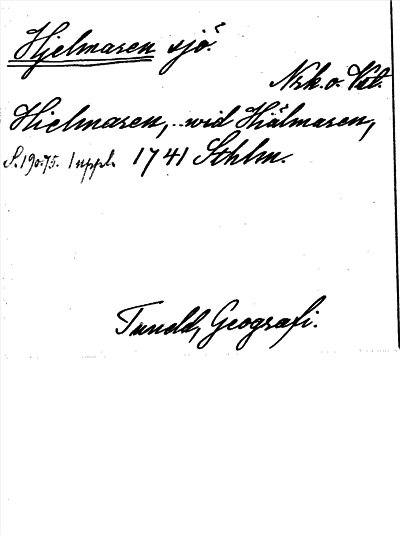 Hjelmaren sjö.
Nrk. o. Vstl.
Hielmaren, wid Hiälmaren,
S. 190.75. 1 uppl. 1741 Sthlm.
Tuneld, Geografi.